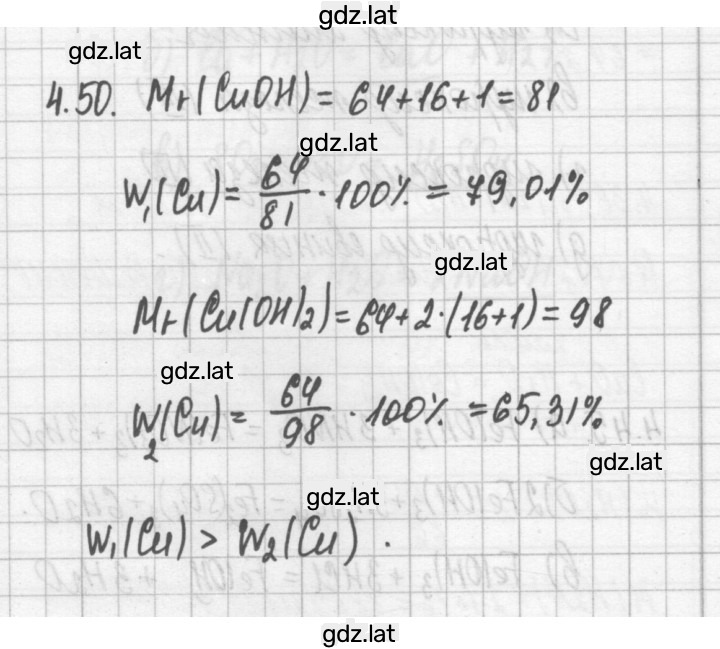 gdz.lat
gdz.lat
4.50. Mr(CuOH) = 64+16+1 = 81
gdz.lat
W₁(Cu) = 64/81 · 100% = 79,01%
gdz.lat
Mr(Cu(OH)₂) = 64+2·(16+1) = 98
gdz.lat
W₂(Cu) = 64/98 · 100% = 65,31%
gdz.lat
gdz.lat
W₁(Cu) > W₂(Cu).
gdz.lat